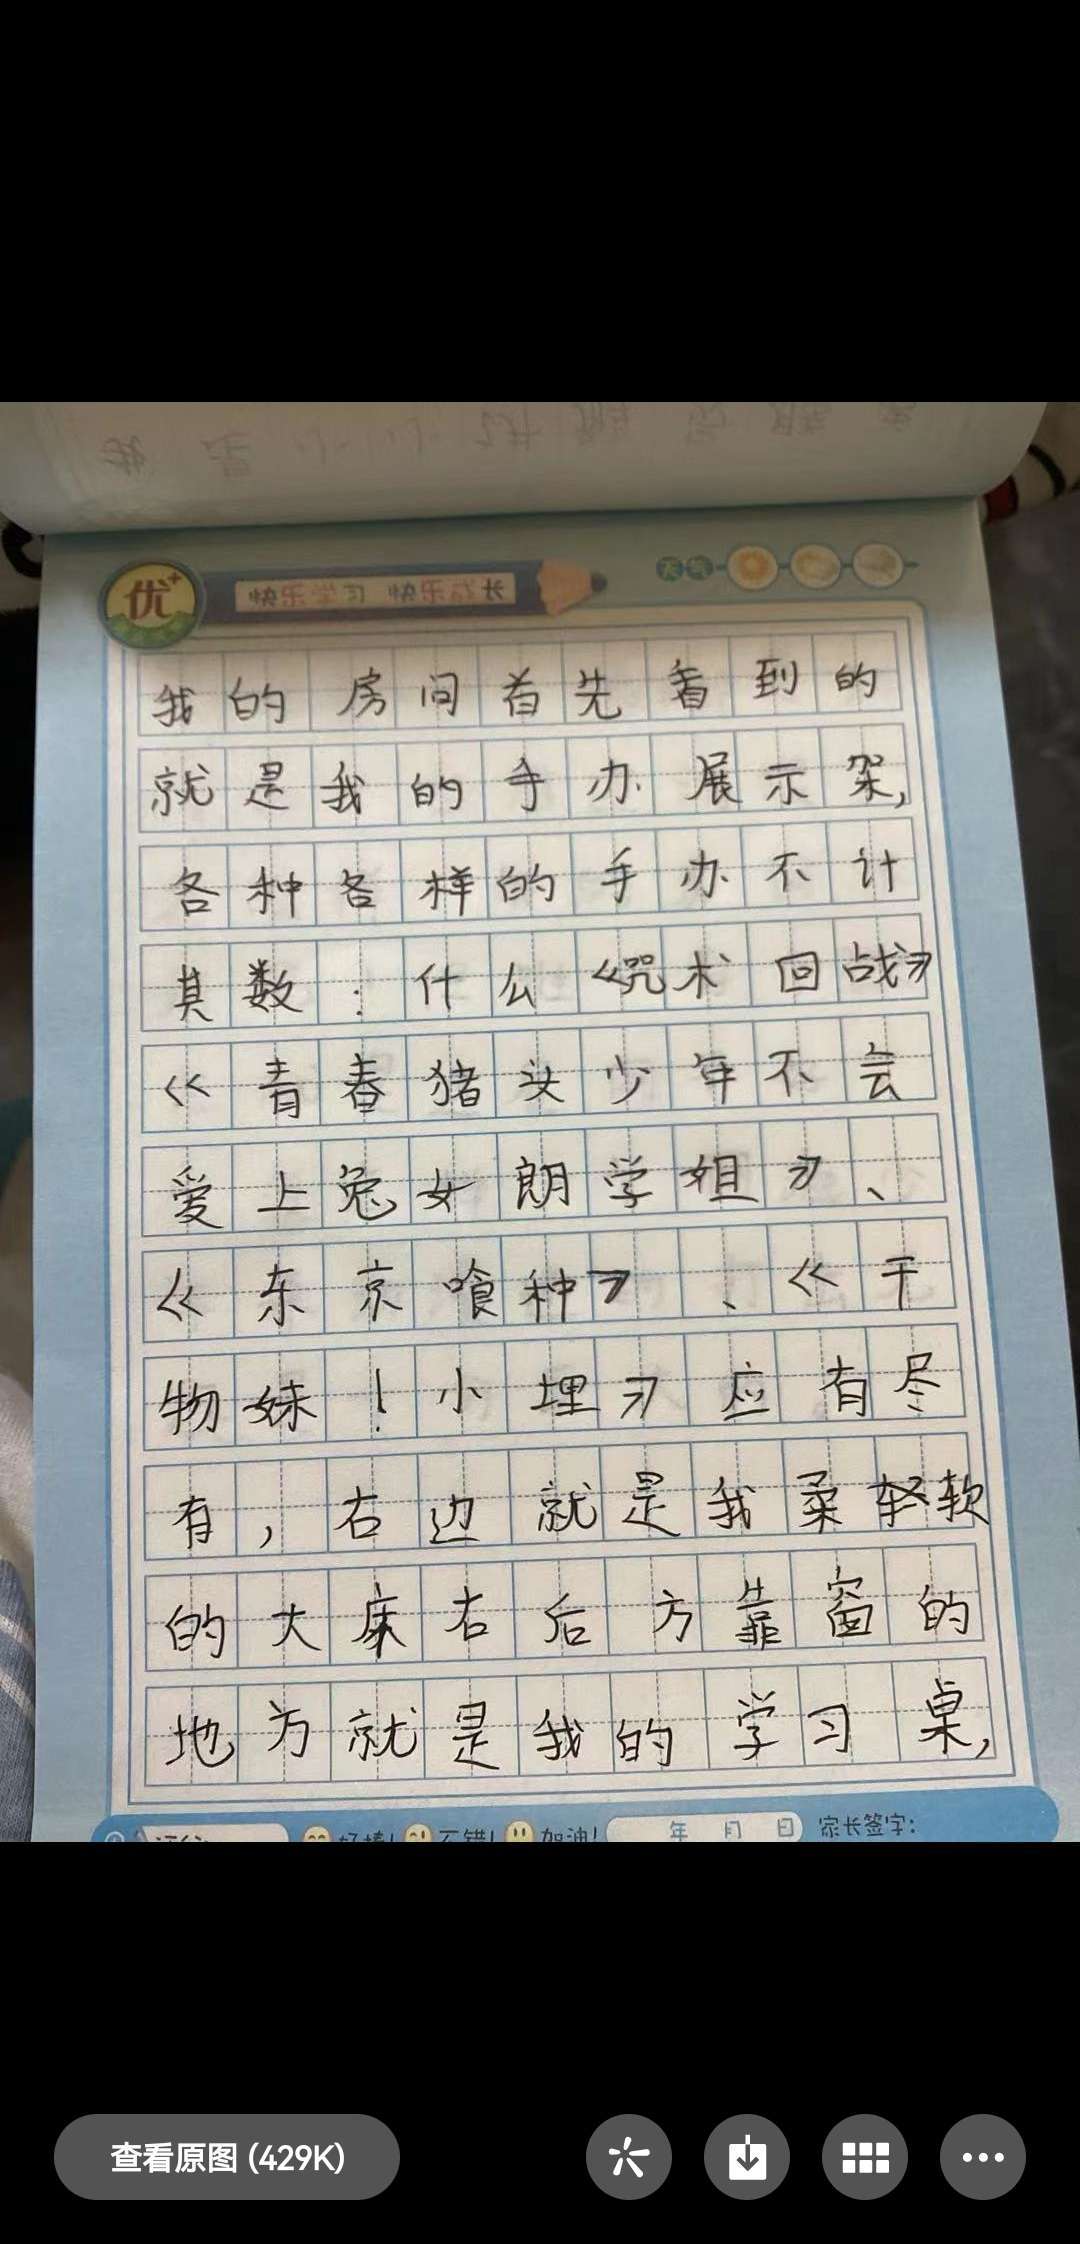 优+
快乐学习 快乐成长
天气
我的房间首先看到的
就是我的手办展示架,
各种各样的手办不计
其数:什么《咒术回战》
《青春猪头少年不会
爱上兔女朗学姐》、
《东京喰种》、《干
物妹!小埋》应有尽
有,右边就是我柔轻软
的大床右后方靠窗的
地方就是我的学习桌,
好棒! 不错! 加油! 年 月 日 家长签字:
查看原图 (429K)